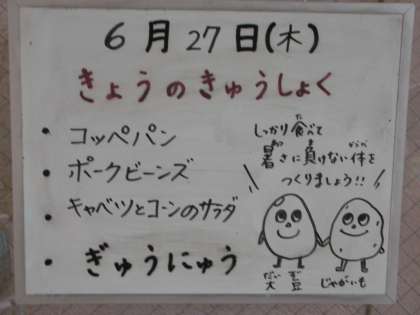 6月27日(木)
きょうのきゅうしょく
・コッペパン
・ポークビーンズ
・キャベツとコーンのサラダ
・ぎゅうにゅう
しっかり食べて
暑さに負けない体を
つくりましょう!!
大豆
じゃがいも